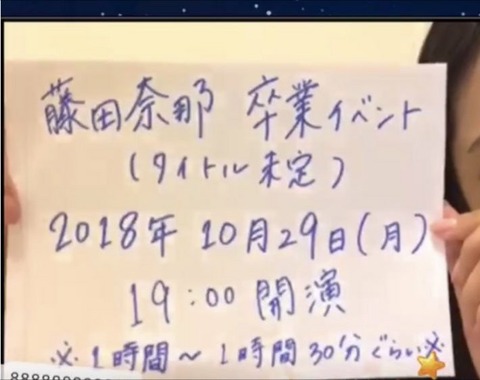 藤田奈那 卒業イベント
(タイトル未定)
2018年 10月29日(月)
19:00 開演
※1時間～1時間30分ぐらい※